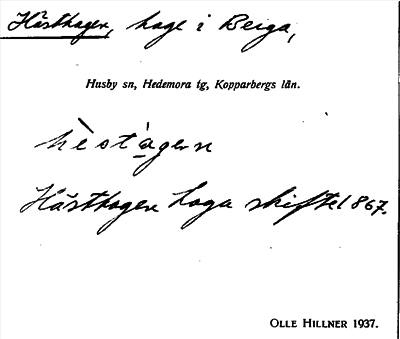 Hästhagen, hage i Berga,
Husby sn, Hedemora tg, Kopparbergs län.
hèstàgen
Hästhagen Laga skifte 1867.
OLLE HILLNER 1937.